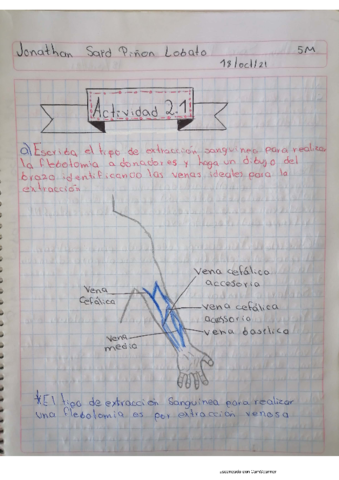 Jonathan Said Piñon Lobato 5M
18/oct/21
Actividad 2.1
a) Escriba el tipo de extracción sanguinea para realizar
la flebotomia a donadores y haga un dibujo del
brazo identificando las venas ideales para la
extracción
vena cefálica
accesoria
vena
cefálica
vena cefálica
acessorio
vena basílica
vena
medio
*El tipo de extracción sanguinea para realizar
una flebotomia es por extracción venosa